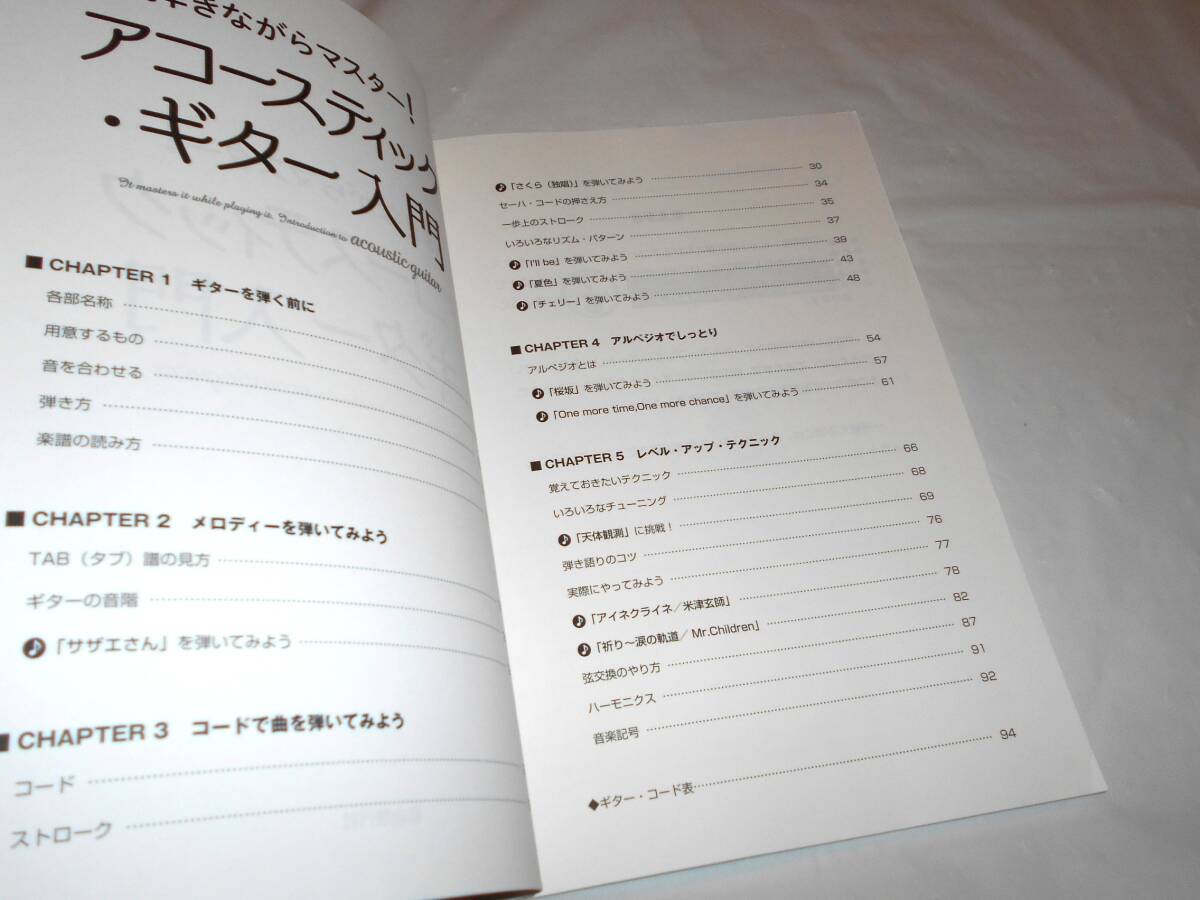 きながらマスター!
アコースティック
・ギター入門
It masters it while playing it. Introduction to acoustic guitar
■ CHAPTER 1 ギターを弾く前に
各部名称
用意するもの
音を合わせる
弾き方
楽譜の読み方
■ CHAPTER 2 メロディーを弾いてみよう
TAB（タブ）譜の見方
ギターの音階
♪「サザエさん」を弾いてみよう
■ CHAPTER 3 コードで曲を弾いてみよう
コード
ストローク
♪「さくら（独唱）」を弾いてみよう 30
セーハ・コードの押さえ方 34
一歩上のストローク 35
いろいろなリズム・パターン 37
♪「I'll be」を弾いてみよう 39
♪「夏色」を弾いてみよう 43
♪「チェリー」を弾いてみよう 48
■ CHAPTER 4 アルペジオでしっとり
アルペジオとは 54
♪「桜坂」を弾いてみよう 57
♪「One more time,One more chance」を弾いてみよう 61
■ CHAPTER 5 レベル・アップ・テクニック
覚えておきたいテクニック 66
いろいろなチューニング 68
♪「天体観測」に挑戦！ 69
弾き語りのコツ 76
実際にやってみよう 77
♪「アイネクライネ／米津玄師」 78
♪「祈り～涙の軌道／Mr.Children」 82
弦交換のやり方 87
ハーモニクス 91
音楽記号 92
◆ギター・コード表 94